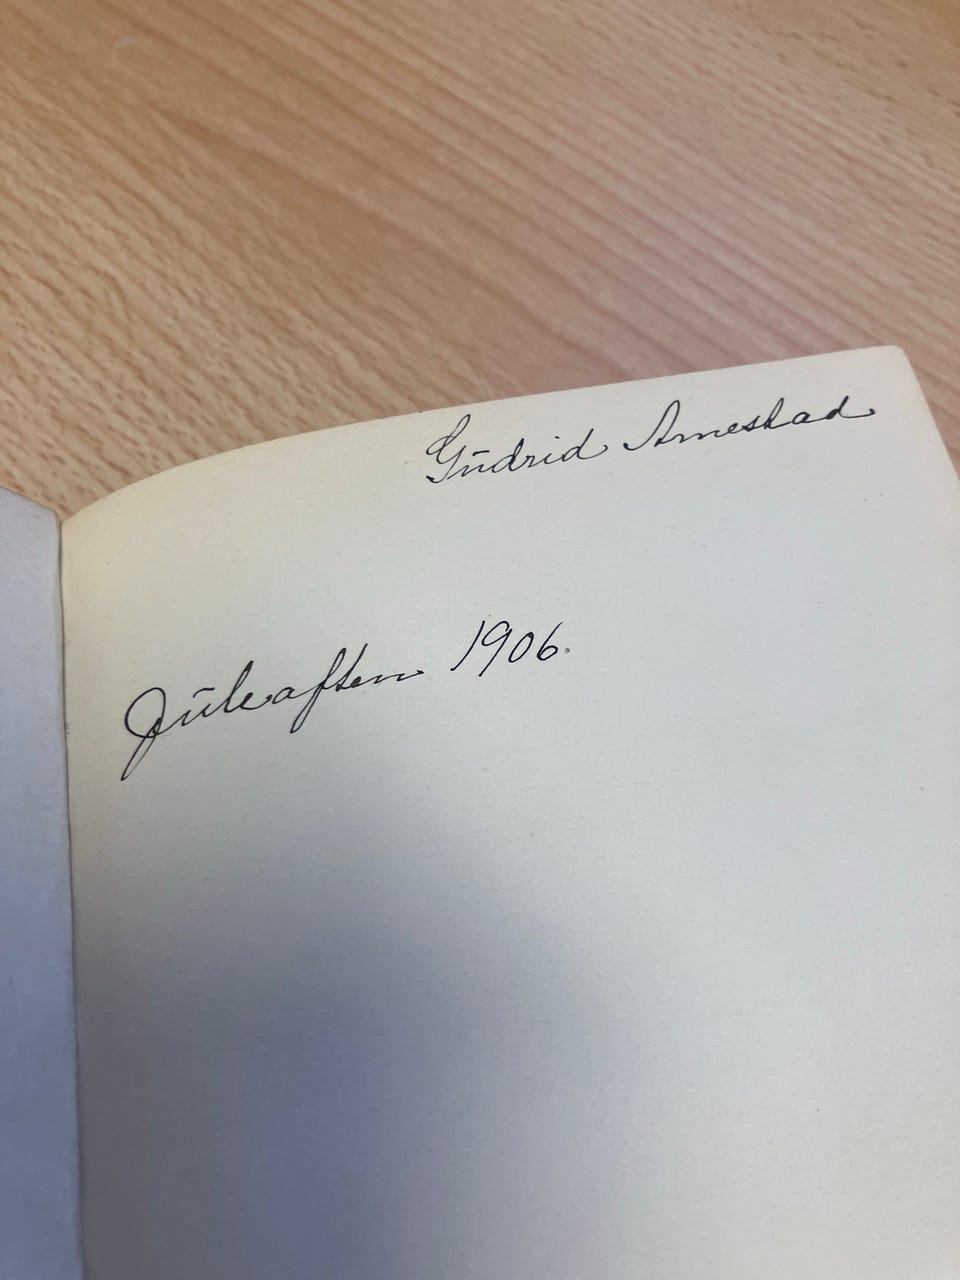 Gūdrid Arnestad
Jūleaften 1906.